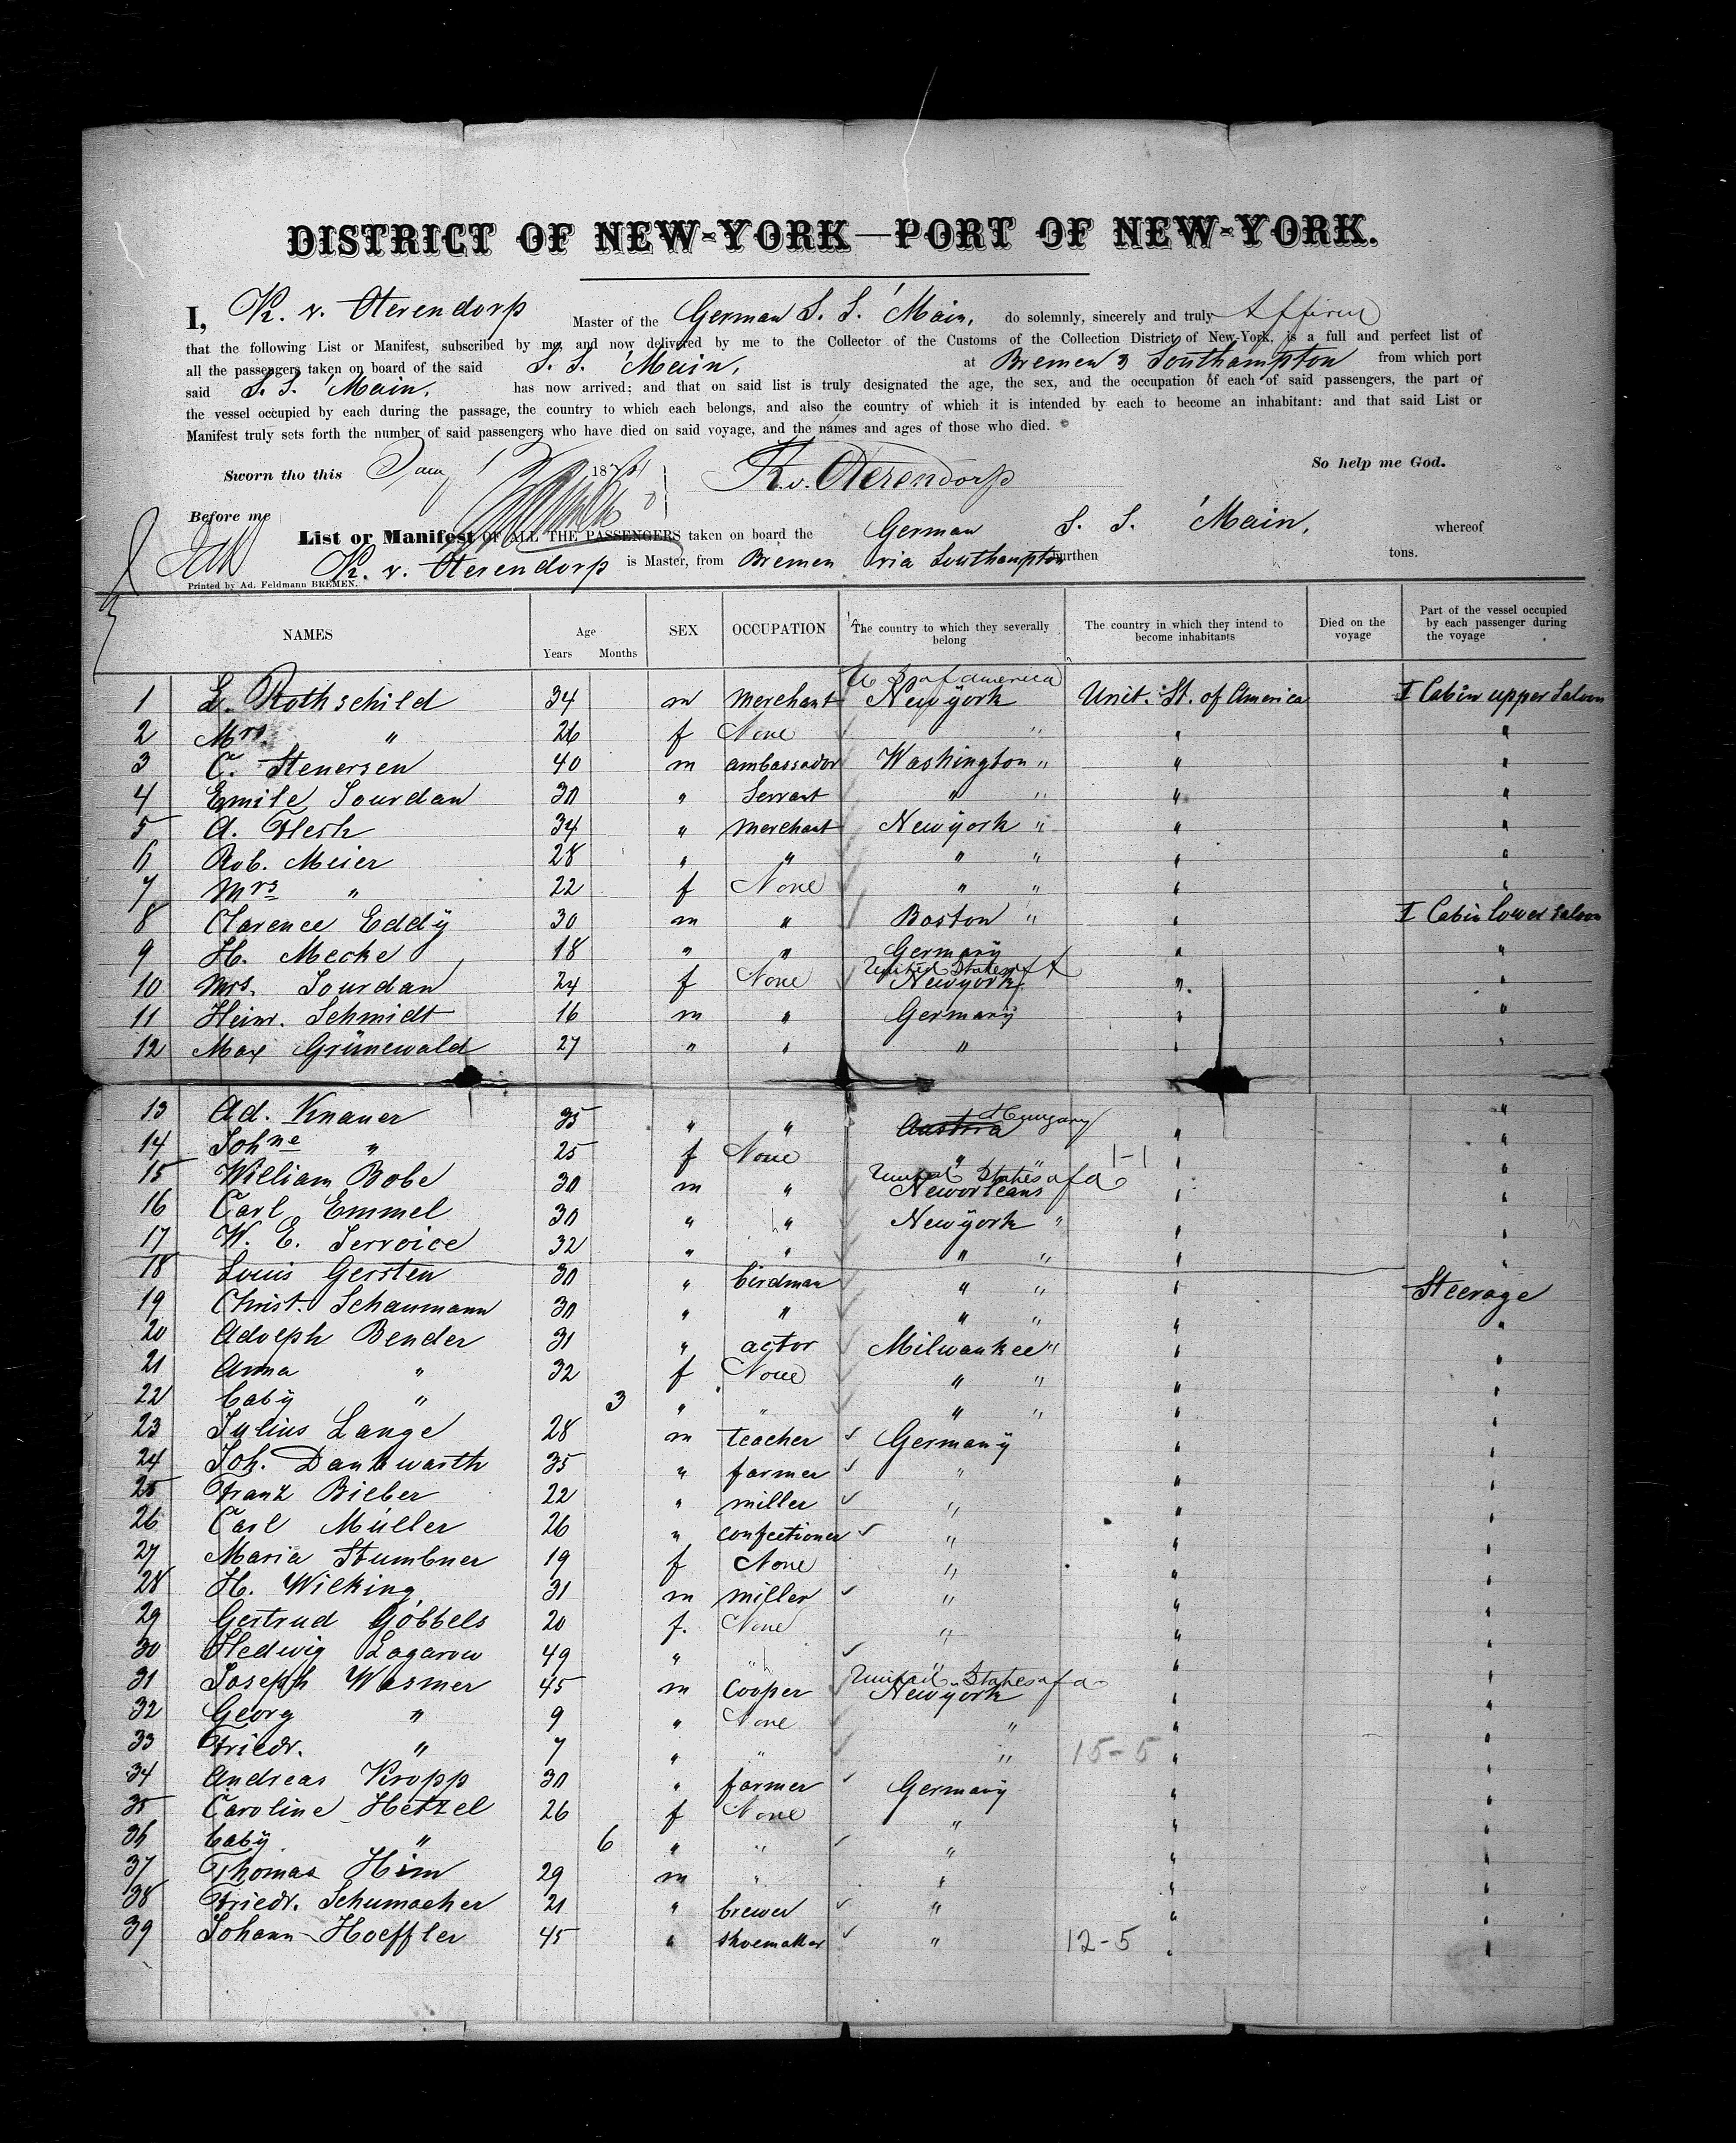 DISTRICT OF NEW-YORK—PORT OF NEW-YORK.
I, K. v. Oterendorp Master of the German S. S. 'Main, do solemnly, sincerely and truly affirm
that the following List or Manifest, subscribed by me, and now delivered by me to the Collector of the Customs of the Collection District of New-York, is a full and perfect list of
all the passengers taken on board of the said S. S. 'Main, at Bremen & Southampton from which port
said S. S. 'Main, has now arrived; and that on said list is truly designated the age, the sex, and the occupation of each of said passengers, the part of
the vessel occupied by each during the passage, the country to which each belongs, and also the country of which it is intended by each to become an inhabitant: and that said List or
Manifest truly sets forth the number of said passengers who have died on said voyage, and the names and ages of those who died.
Sworn tho this Jany 187 K. v. Oterendorp So help me God.
Before me
List or Manifest OF ALL THE PASSENGERS taken on board the German S. S. 'Main, whereof
K. v. Oterendorp is Master, from Bremen via Southampton burthen tons.
Printed by Ad. Feldmann BREMEN.
NAMES Age Years Months SEX OCCUPATION The country to which they severally belong The country in which they intend to become inhabitants Died on the voyage Part of the vessel occupied by each passenger during the voyage
U S of america
1 L. Rothschild 34 m merchant Newyork Unit. St. of America I Cabin upper Saloon
2 Mrs. " 26 f None " " "
3 C. Stenersen 40 m ambassador Washington " " "
4 Emile Jourdan 30 " Servant " " " "
5 A. Flesh 34 " merchant Newyork " " "
6 Rob. Meier 28 " " " " " "
7 Mrs " 22 f None " " " "
8 Clarence Eddy 30 m " Boston " " I Cabin lower Saloon
9 H. Mecke 18 " " Germany " "
United States of A
10 Mrs. Jourdan 24 f None Newyork " "
11 Heinr. Schmidt 16 m " Germany " "
12 Max Grünewald 27 " " " " "
13 Ad. Knauer 35 " " Austria Hungary " "
14 Johne " 25 f None " 1-1 " "
United States of a
15 William Bobe 30 m " Neworleans " "
16 Carl Emmel 30 " " Newyork " " "
17 W. E. Servoice 32 " " " " " "
18 Louis Gersten 30 " birdman " " " Steerage
19 Christ. Schaumann 30 " " " " " "
20 Adolph Bender 31 " actor Milwaukee " " "
21 Anna " 32 f None " " " "
22 baby " 3 " " " " " "
23 Julius Lange 28 m teacher Germany " "
24 Joh. Dankwarth 35 " farmer " " "
25 Franz Bieber 22 " miller " " "
26 Carl Müller 26 " confectioner " " "
27 Maria Stumbner 19 f None " " "
28 H. Wilking 31 m miller " " "
29 Gertrud Göbbels 20 f. None " " "
30 Hedwig Lagarow 49 " " " " "
United States of a
31 Joseph Wasmer 45 m Cooper Newyork " "
32 Georg " 9 " None " " "
33 Friedr. " 7 " " " 15-5 " "
34 Andreas Kropp 30 " farmer Germany " "
35 Caroline Hetzel 26 f None " " "
36 baby " 6 " " " " "
37 Thomas Him 29 m " " " "
38 Friedr. Schumacher 21 " brewer " " "
39 Johann Hoeffler 45 " shoemaker " 12-5 " "